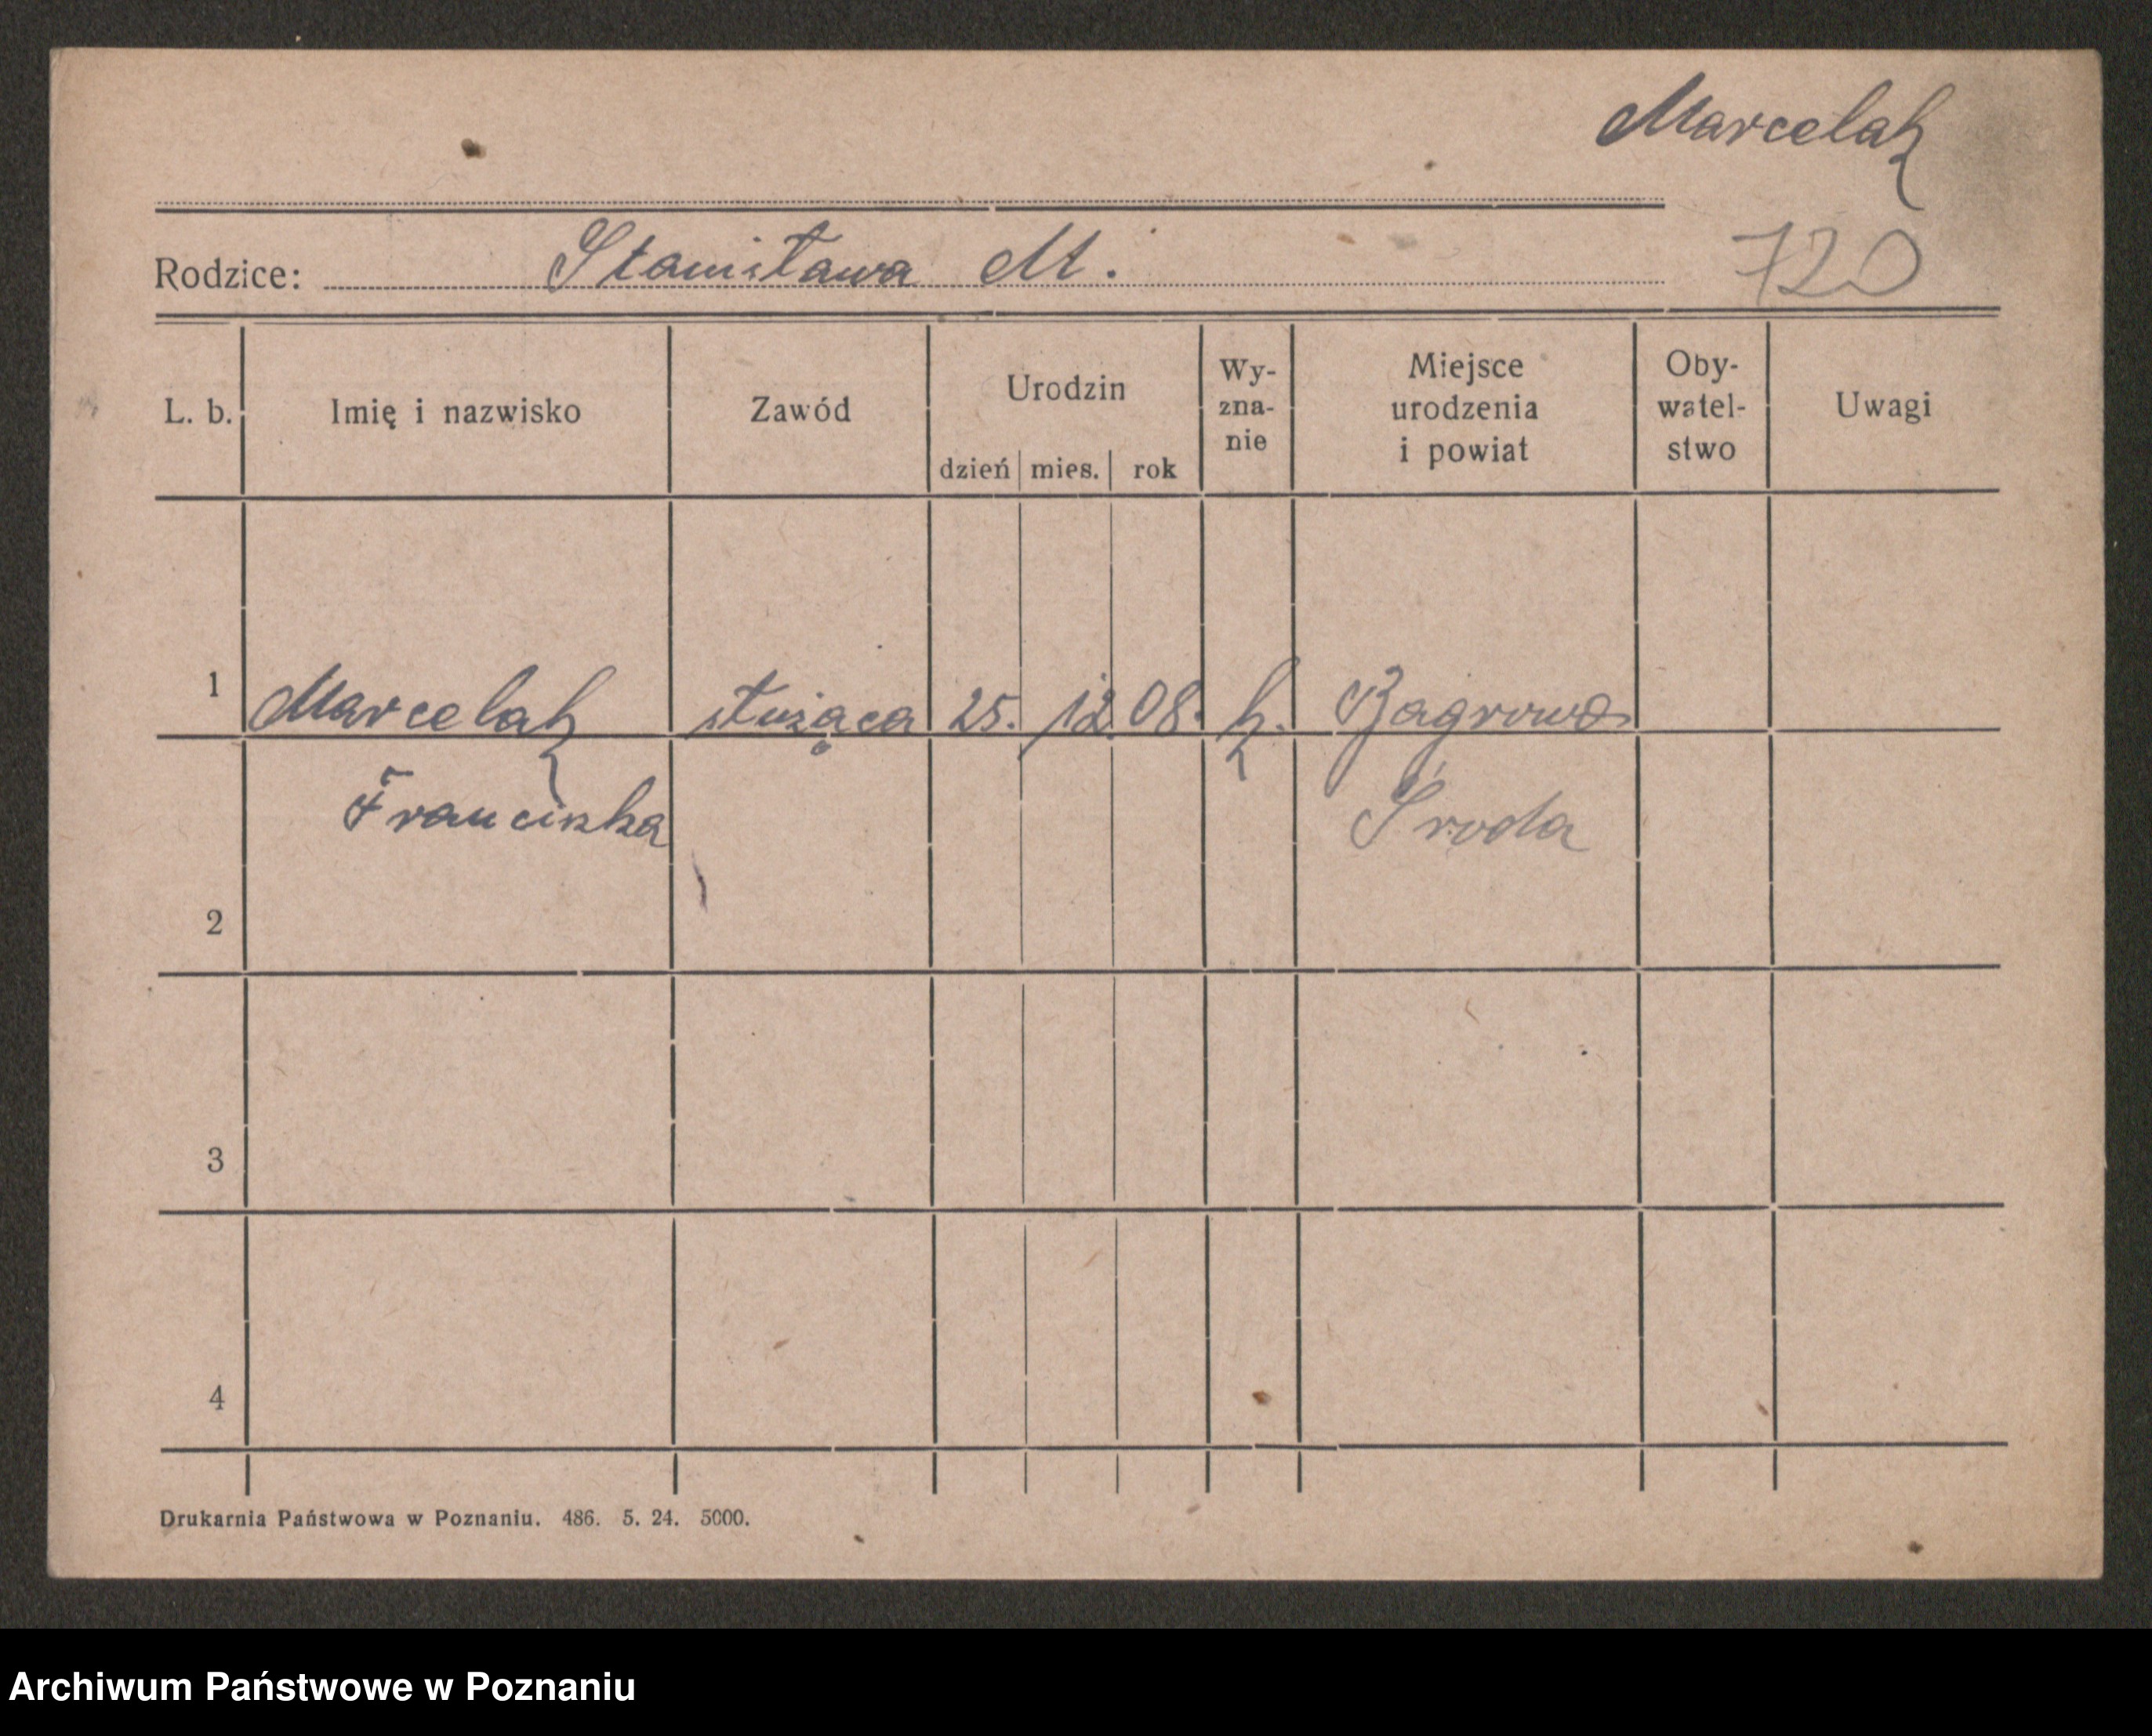 Marcelak
Rodzice: Stanisława M.
720
L. b. Imię i nazwisko Zawód Urodzin dzień mies. rok Wy-zna-nie Miejsce urodzenia i powiat Oby-watel-stwo Uwagi
1 Marcelak służąca 25. 12. 08. k. Bagrowo
Franciszka Środa
2
3
4
Drukarnia Państwowa w Poznaniu. 486. 5. 24. 5000.
Archiwum Państwowe w Poznaniu